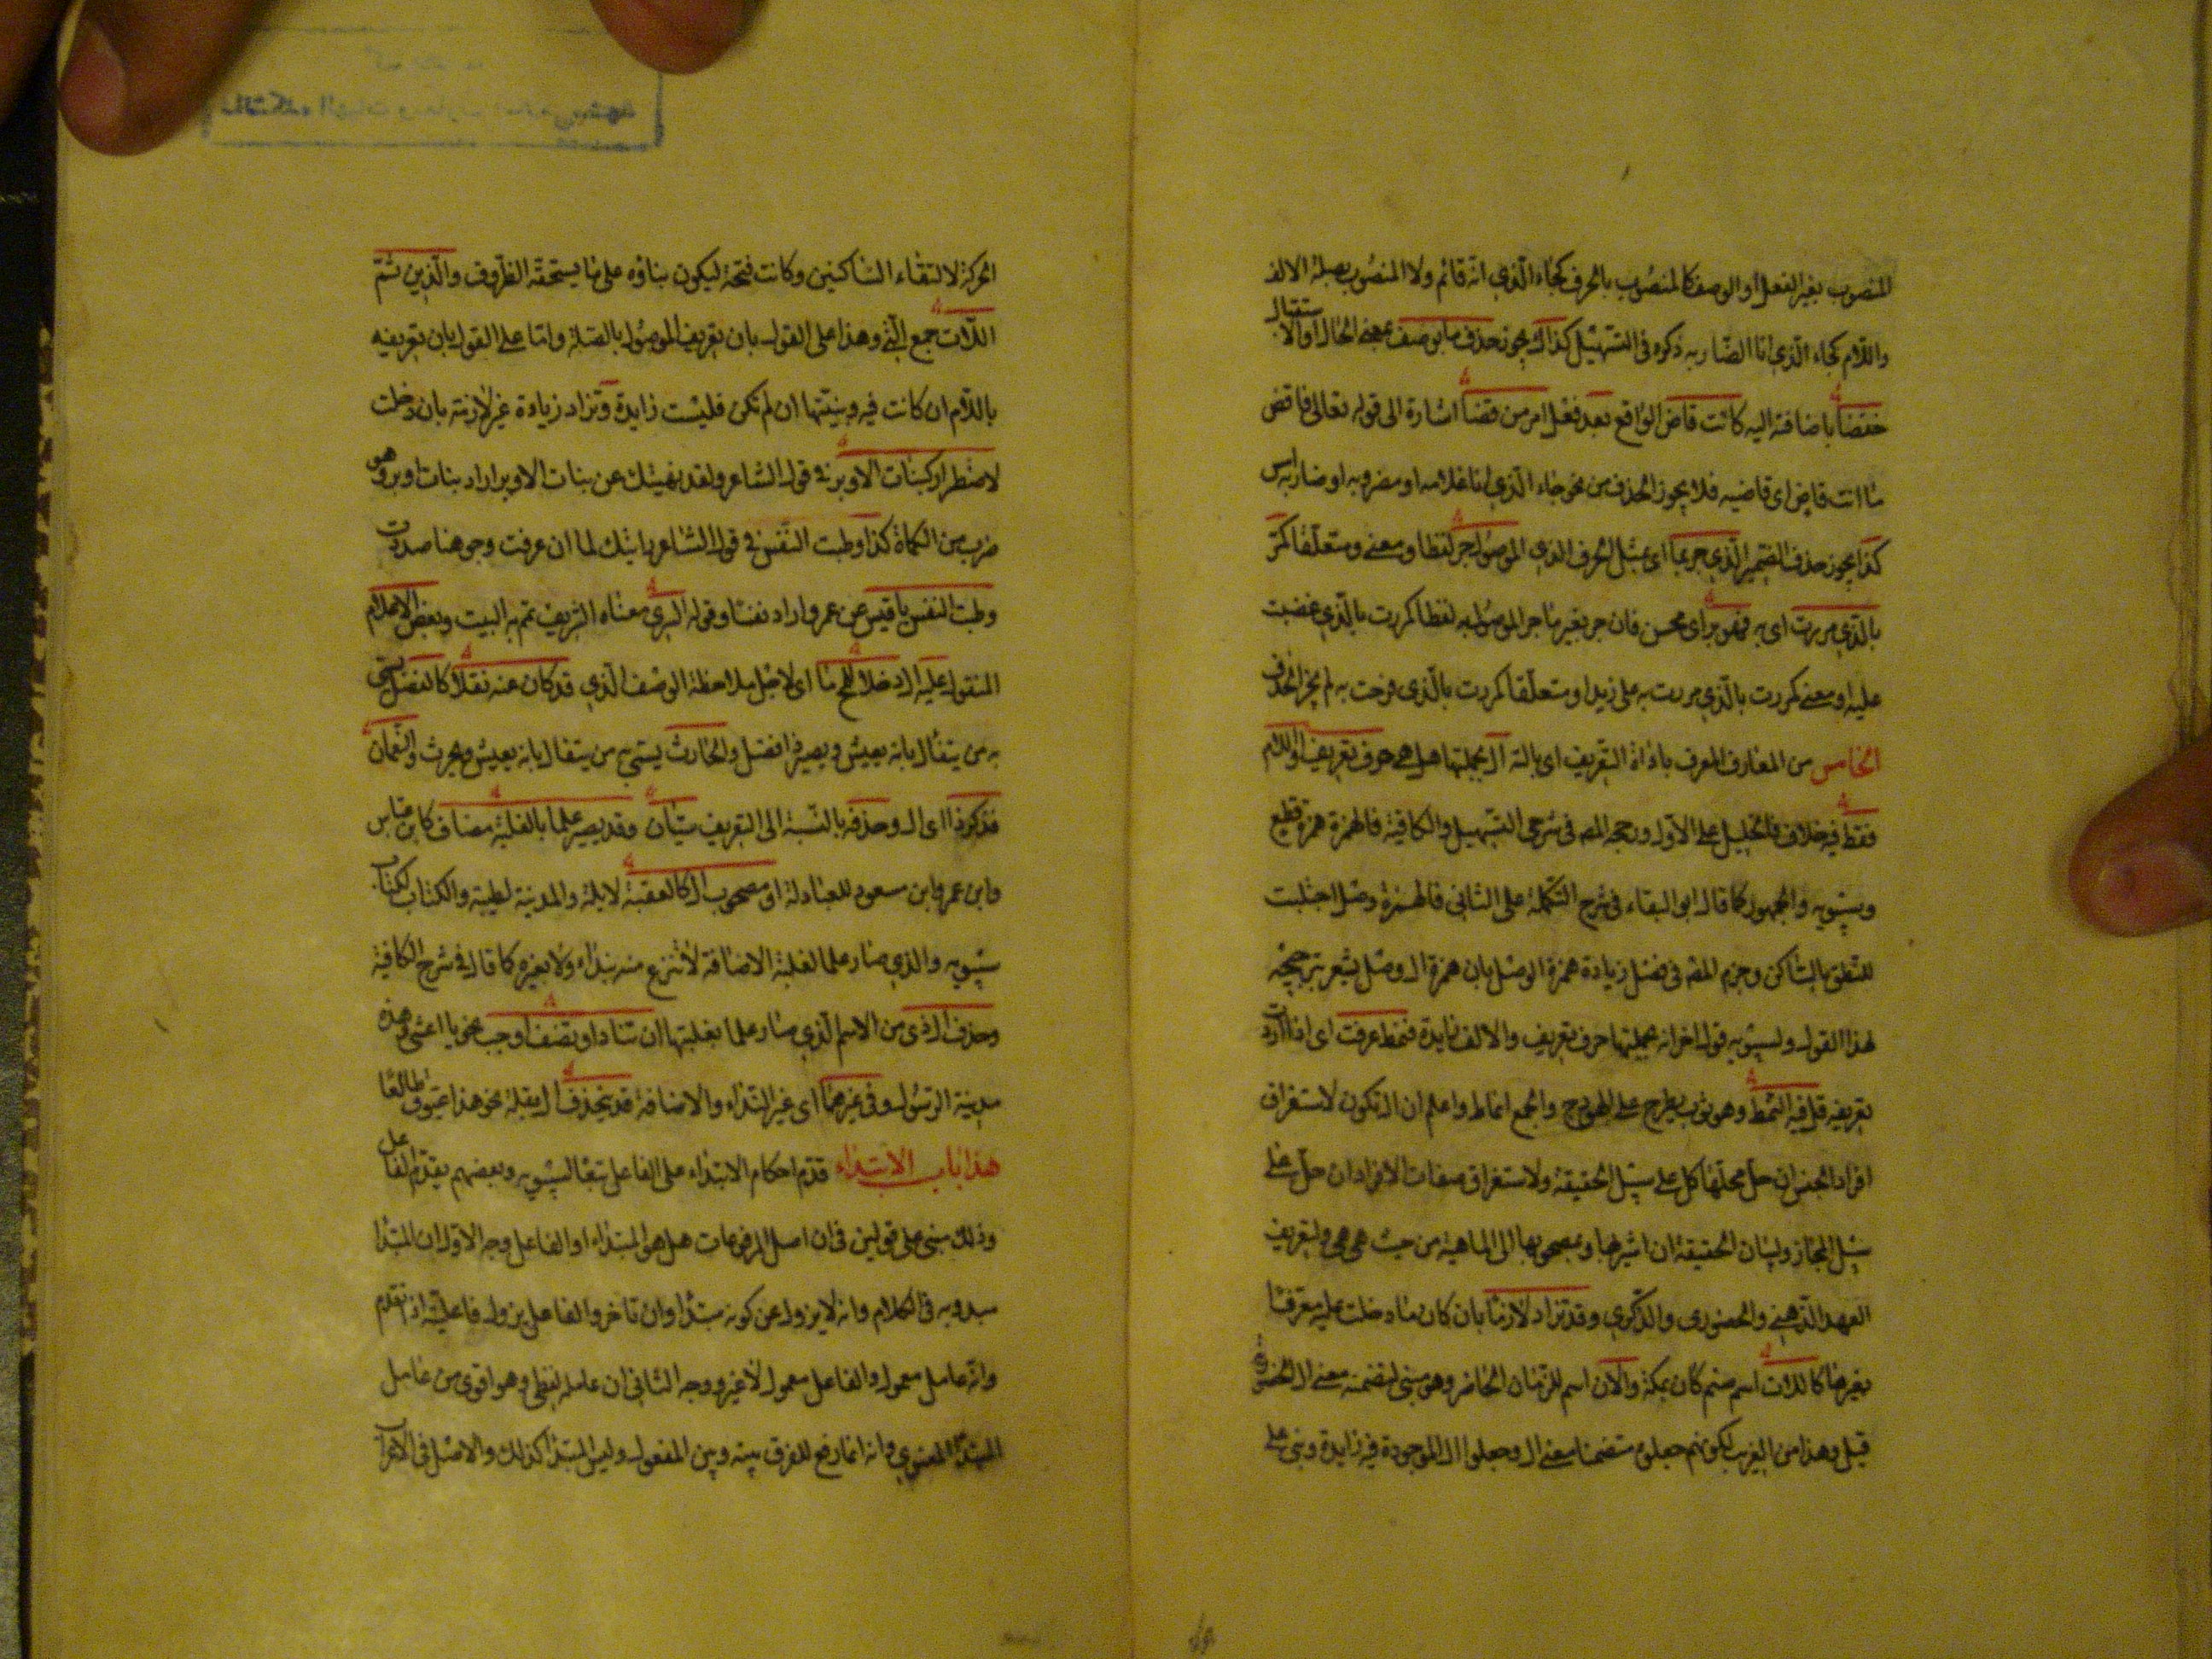 المنصوب بغير الفعل او الوصف كالمنصوب بالحرف كجاء الذي انه قائم ولا المنصوب بصلة الالف
واللام كجاء الذي انا الضاربه ذكره فى التسهيل كذاك يجوز حذف ما بوصف بمعنى الحال او الاستقبال
خفضا باضافته اليه كانت قاض الواقع بعد فعل امر من قضا اشارة الى قوله تعالى فاقض
ما انت قاض اى قاضيه فلا يجوز الحذف من نحو جاء الذي انا غلامه او مضروبه او ضاربه امس
كذا يجوز حذف الضمير الذي جر بما اى بمثل الحرف الذي الموصول جر لفظا ومعنى ومتعلقا كمر
بالذي مررت اى به فهو بر اى محسن فان جر بغير ما جر الموصول به لفظا كمررت بالذي غضبت
عليه او معنى كمررت بالذي مررت به على زيد او متعلقا كمررت بالذي فرحت به لم يجز الحذف
الخامس من المعارف المعرف باداة التعريف اى بالته ال بجملتها هل هى حرف تعريف او اللام
فقط فيه خلاف فالخليل على الاول ورجحه المصـ فى شرحى التسهيل والكافية فالهمزة همزة قطع
وسيبويه والجمهور كما قال ابو البقاء فى شرح التكملة على الثانى فالهمزة وصل اجتلبت
للنطق بالساكن وجزم المصـ فى فصل زيادة همزة الوصل بان همزة ال وصل يشعر بترجيحه
لهذا القول ولسيبويه قول اخر انه بجملتها حرف تعريف والالف زايدة فنمط عرفت اى اذا اردت
تعريفه قل فيه النمط وهو ثوب يطرح على الهودج والجمع انماط واعلم ان ال تكون لاستغراق
افراد الجنس ان حل محلها كل على سبيل الحقيقة ولاستغراق صفات الافراد ان حل على
سبيل المجاز ولبيان الحقيقة ان اشير بها وبمصحوبها الى الماهية من حيث هى هى ولتعريف
العهد الذهنى والحضورى والذكري وقد تزاد لازما بان كان ما دخلت عليه معرفا
بغيرها كاللات اسم صنم كان بمكة والآن اسم للزمان الحاضر وهو مبنى لتضمنه معنى ال الحضورى
قيل وهذا من الغريب لكونهم جعلوه متضمنا معنى ال وجعلوا ال الموجودة فيه زايدة وبنى على
الحركة لالتقاء الساكنين وكانت فتحة ليكون بناؤه على ما يستحقه الظروف والذين ثم
اللات جمع التى وهذا على القول بان تعريف الموصول بالصلة واما على القول بان تعريفه
باللام ان كانت فيه وبنيتها ان لم تكن فليست زايدة وتزاد زيادة غير لازمة بان دخلت
لاضطرار كبنات الاوبر فى قول الشاعر ولقد نهيتك عن بنات الاوبر اراد بنات اوبر وهو
ضرب من الكماة كذا وطبت النفس فى قول الشاعر رايتك لما ان عرفت وجوهنا صددت
وطبت النفس يا قيس عن عمرو اراد نفسا وقوله السرى معناه الشريف تمم به البيت وبعض الاعلام
المنقول عليه ال دخلا للمح ما اى لاجل ملاحظة الوصف الذي قد كان عنه نقلا كالفضل يسمى
به من يتفال بانه يعيش ويصير ذا فضل والحارث يسمى به من يتفال بانه يعيش ويحرث والنعمان
فذكر ذا اى ال وحذفه بالنسبة الى التعريف سيان وقد يصير علما بالغلبة مضاف كابن عباس
وابن عمر وابن مسعود للعبادلة او مصحوب ال كالعقبة لايلة والمدينة لطيبة والكتاب لكتاب
سيبويه والذي صار علما لغلبة الاضافة لا تنزع منه بنداء ولا بغيره كما قال فى شرح الكافية
وحذف ال ذى من الاسم الذي صار علما بغلبتها ان تناد او تضف اوجب نحو يا اعشى وهذه
مدينة الرسول وفى غيرهما اى غير النداء والاضافة قد تنحذف ال بقلة نحو هذا عيوق طالعا
هذا باب الابتداء قدم احكام الابتداء على الفاعل تبعا لسيبويه وبعضهم يقدم الفاعل
وذلك مبنى على قولين فى ان اصل المرفوعات هل هو المبتداء او الفاعل وجه الاول ان المبتدا
مبدو به فى الكلام وانه لا يزول عن كونه مبتدا وان تاخر والفاعل يزول فاعليته اذا تقدم
وانه عامل معمول والفاعل معمول لا غير ووجه الثانى ان عامله لفظى وهو اقوى من عامل
المبتدا المعنوي وانه انما رفع للفرق بينه وبين المفعول وليس المبتدا كذلك والاصل فى الاعراب